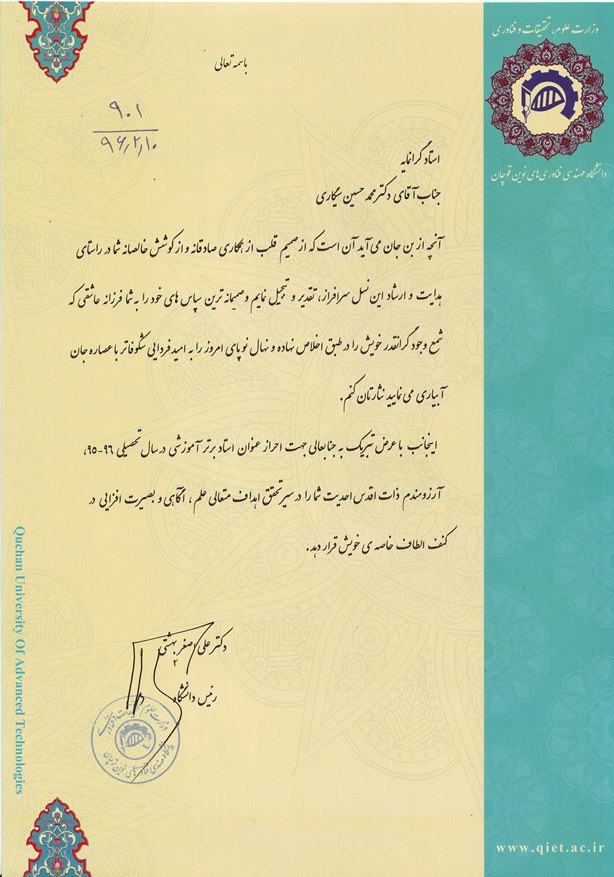 وزارت علوم، تحقیقات و فناوری
دانشگاه مهندسی فناوری‌های نوین قوچان
باسمه تعالی
۹۰۱
۹۶/۲/۱۰
استاد گرانمایه
جناب آقای دکتر محمد حسین سیگاری
آنچه از بن جان می‌آید آن است که از صمیم قلب از همکاری صادقانه و از کوشش خالصانه شما در راستای
هدایت و ارشاد این نسل سرافراز، تقدیر و تبجیل نمایم و صمیمانه ترین سپاس های خود را به شما فرزانه عاشقی که
شمع وجود گرانقدر خویش را در طبق اخلاص نهاده و نهال نوپای امروز را به امید فردایی شکوفاتر با عصاره جان
آبیاری می نمایید نثارتان کنم.
اینجانب با عرض تبریک به جنابعالی جهت احراز عنوان استاد برتر آموزشی در سال تحصیلی ۹۶-۹۵،
آرزومندم ذات اقدس احدیت شما را در سیر تحقق اهداف متعالی علم، آگاهی و بصیرت افزایی در
کنف الطاف خاصه ی خویش قرار دهد.
دکتر علی اصغر بهشتی
رئیس دانشگاه
Quchan University Of Advanced Technologies
www.qiet.ac.ir